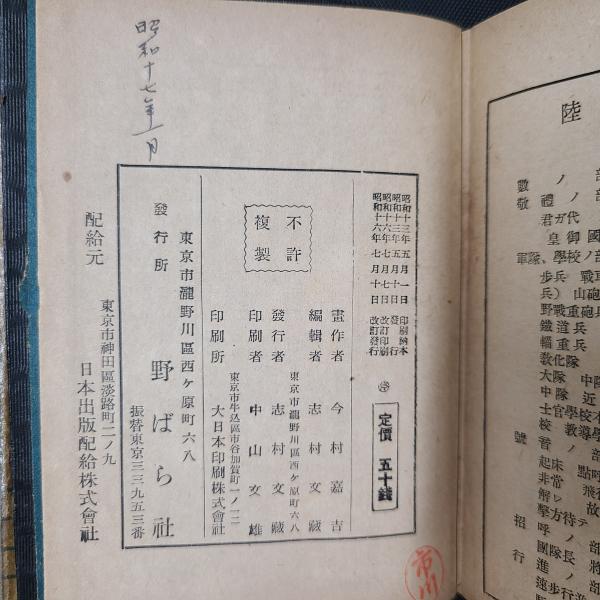 陸
部
ノ
禮
數敬
部
君ガ代
皇御國
軍隊、學校ノ部
步兵
戰車
兵)
山砲
野戰重砲
鐵道兵
輜重兵
敎化隊
大隊
中隊
中隊
近
士官學校
敎導
號
音
ノ部
起床
點呼
非常
飛行
解レ
故
擊方待テ
呼ノ
團隊長
將
招
進行
部
速步行進
行
昭和十三年五月一日 印刷納本
昭和十三年五月十日 發行
昭和十六年七月七日 改訂印刷
昭和十六年七月十日 改訂發行
定價 五十錢
不許複製
畫作者 今村嘉吉
東京市瀧野川區西ヶ原町六八
編輯者 志村文藏
發行者 志村文藏
東京市牛込區市谷加賀町一ノ一二
印刷者 中山文雄
印刷所 大日本印刷株式會社
東京市瀧野川區西ヶ原町六八
發行所 野ばら社
振替東京三三九五三番
配給元 東京市神田區淡路町二ノ九
日本出版配給株式會社
昭和十七年一月
市川